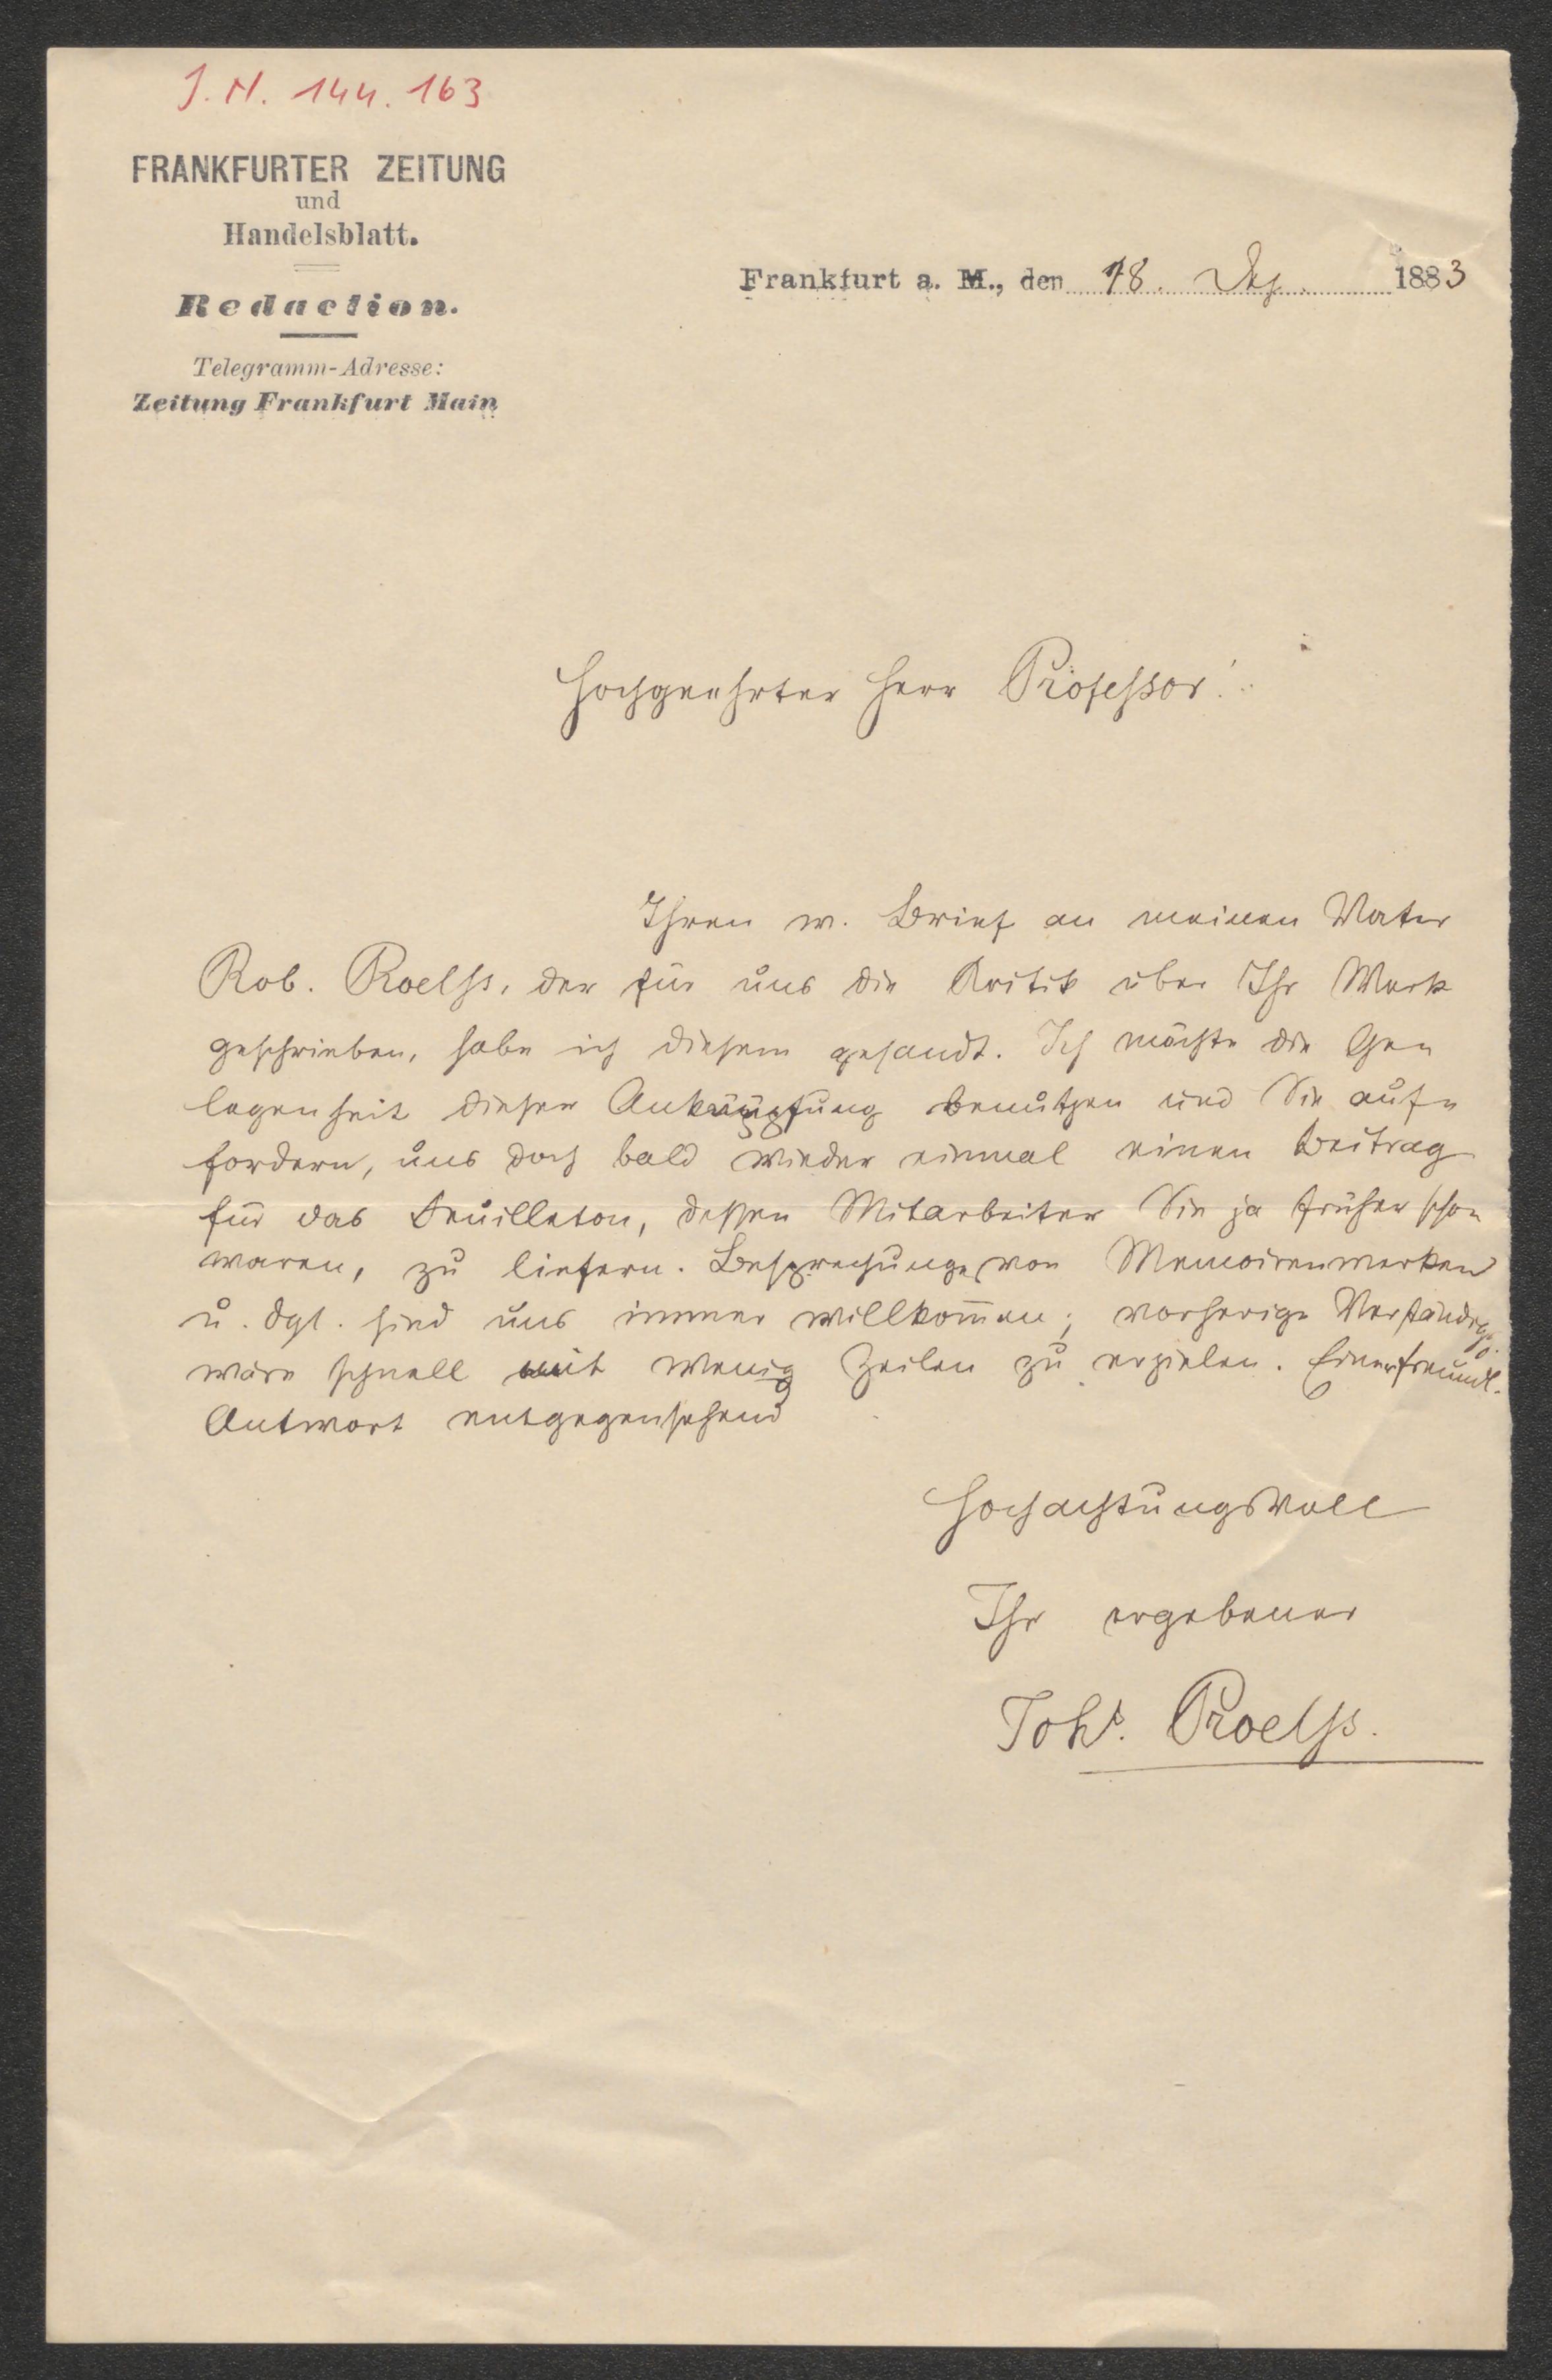 J. N. 144.163
FRANKFURTER ZEITUNG
und
Handelsblatt.
Redaction.
Telegramm-Adresse:
Zeitung Frankfurt Main
Frankfurt a. M., den 18. Dez. 1883
Hochgeehrter Herr Professor!
Ihren w. Brief an meinen Vater
Rob. Proelß, der für uns die Kritik über Ihr Werk
geschrieben, habe ich diesem gesandt. Ich möchte die Ge-
legenheit dieser Anknüpfung benützen und Sie auf-
fordern, uns doch bald wieder einmal einen Beitrag
für das Feuilleton, dessen Mitarbeiter Sie ja früher schon
waren, zu liefern. Besprechungen von Memoirenwerken
u. dgl. sind uns immer willkom̅en; vorherige Verständigg.
wäre schnell mit wenig Zeilen zu erzielen. Einer freundl.
Antwort entgegensehend
Hochachtungsvoll
Ihr ergebener
Johs. Proelß.